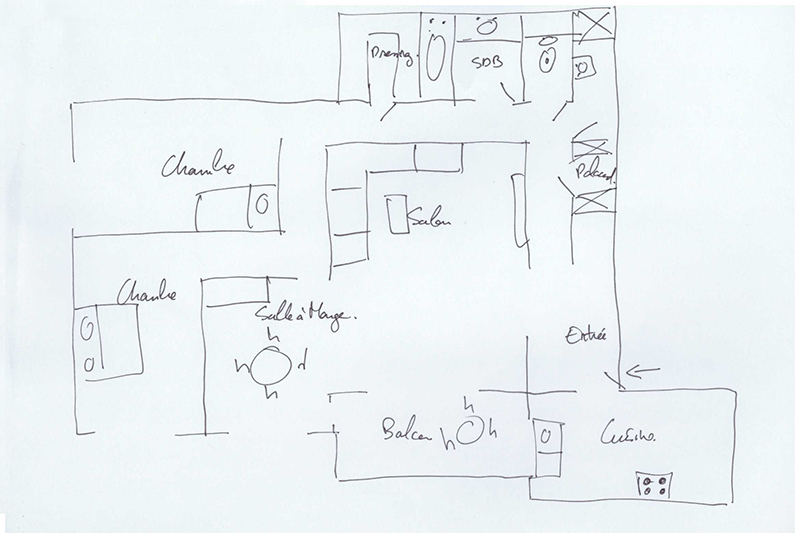 Dressing.
SDB
Chambre
Placard.
Salon
Chambre
Salle à Manger.
Entrée
Balcon
Cuisine.